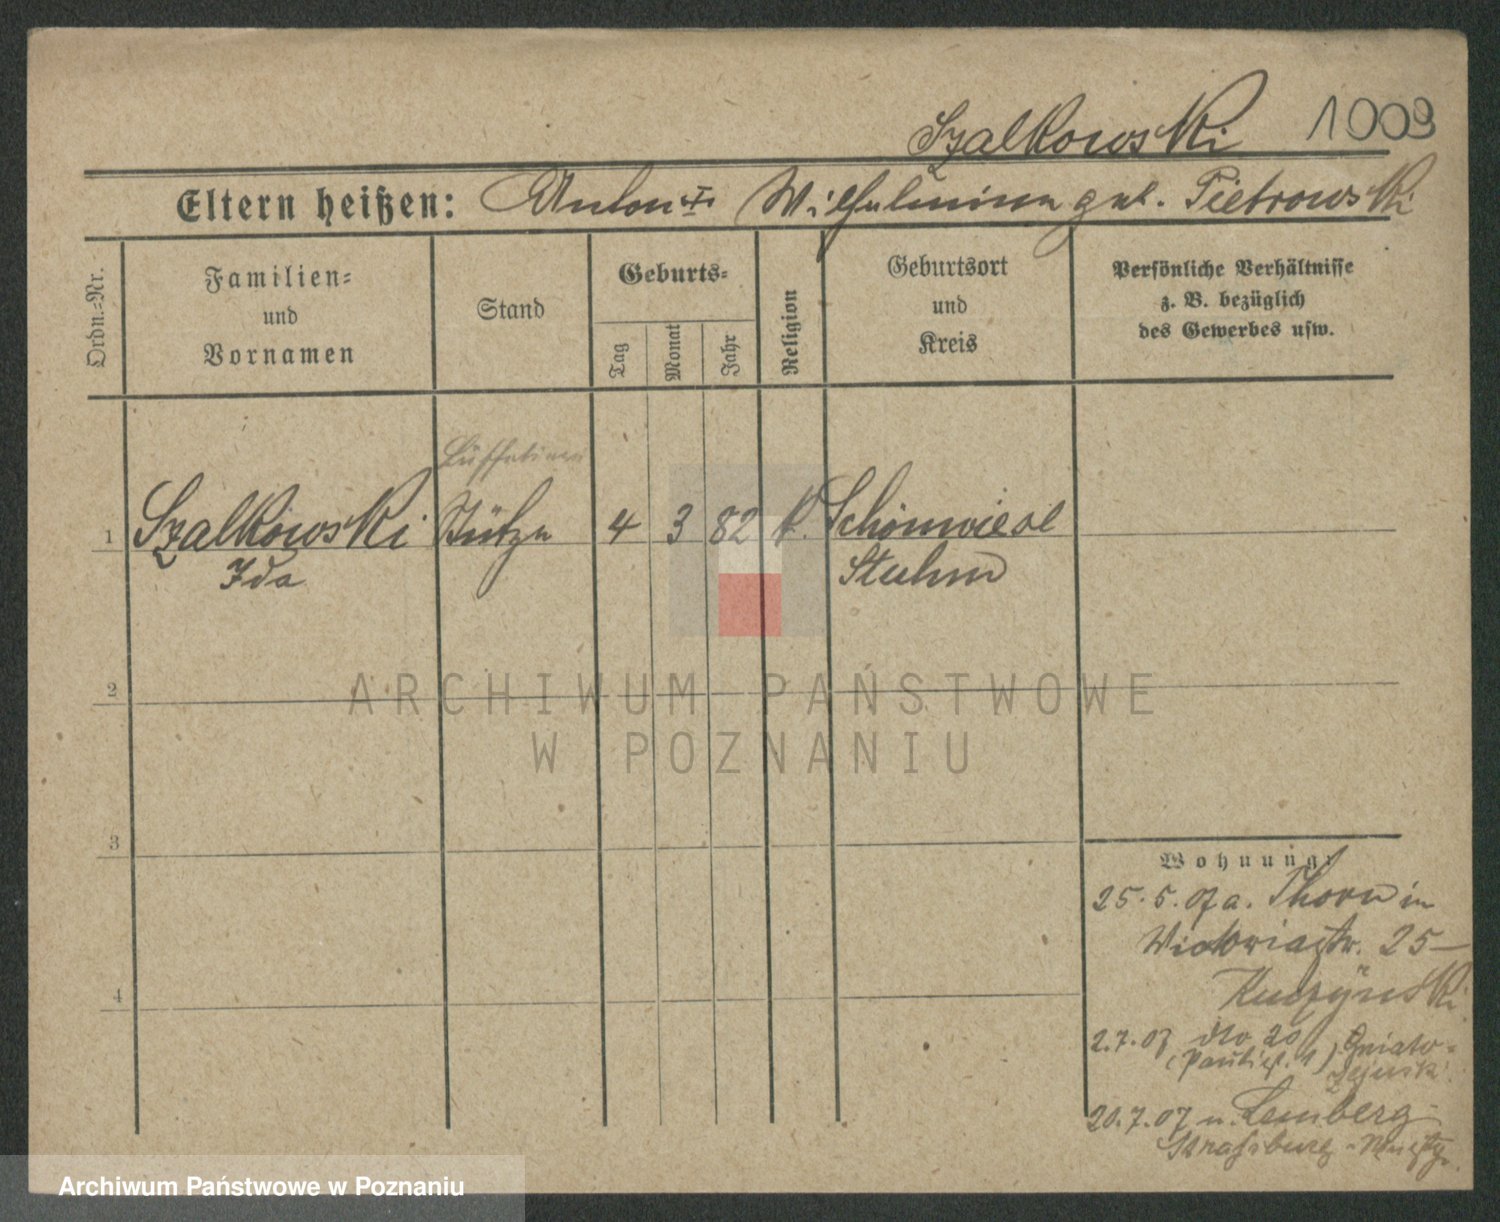 Szalkowski 1009
Eltern heißen: Anton + Wilhelmina geb. Pietrowski
Ordn.-Nr.
Familien-
und
Vornamen
Stand
Geburts-
Tag
Monat
Jahr
Religion
Geburtsort
und
Kreis
Persönliche Verhältnisse
z. B. bezüglich
des Gewerbes usw.
1 Szalkowski Stütze 4 3 82 k. Schönwiese
Ida Stuhm
2
3
4
Wohnung:
25.5.07 a. Thorn in
Victoriastr. 25 —
Kuczynski
2.7.07 dto 20
(Paulist. 1)
20.7.07 n. Lemberg
Strassburg - Westpr.
ARCHIWUM PAŃSTWOWE
W POZNANIU
Archiwum Państwowe w Poznaniu